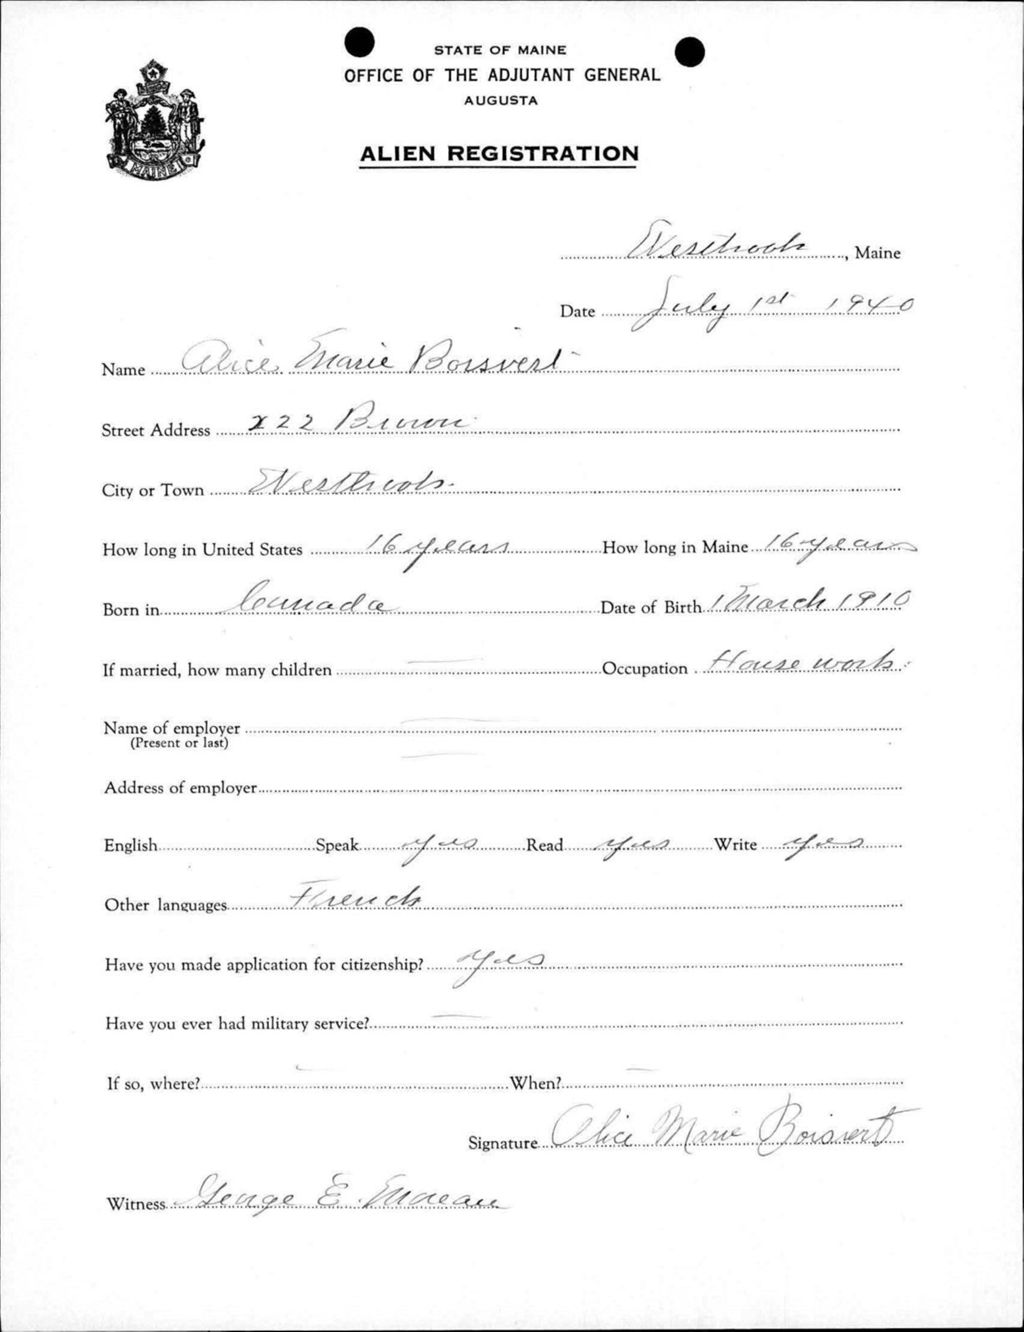 STATE OF MAINE
OFFICE OF THE ADJUTANT GENERAL
AUGUSTA
ALIEN REGISTRATION
MAINE
Westbrook, Maine
Date July 1st 1940
Name Alice Marie Boisvert
Street Address 222 Brown
City or Town Westbrook
How long in United States 16 years How long in Maine 16 years
Born in Canada Date of Birth 1 March 1910
If married, how many children — Occupation House work
Name of employer —
(Present or last)
Address of employer —
English Speak yes Read yes Write yes
Other languages French
Have you made application for citizenship? yes
Have you ever had military service? —
If so, where? — When? —
Signature Alice Marie Boisvert
Witness George E. Moreau